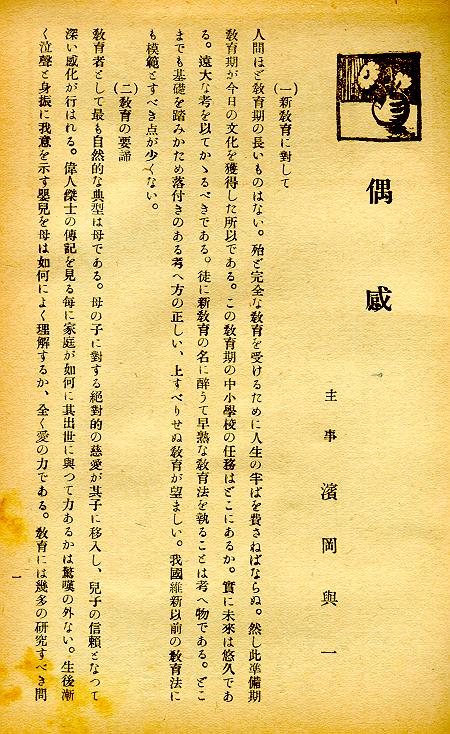 偶感
主事 濱岡與一
(一)新敎育に對して
人間ほど敎育期の長いものはない。殆ど完全な敎育を受けるために人生の半ばを費さねばならぬ。然し此準備期
敎育期が今日の文化を獲得した所以である。この敎育期の中小學校の任務はどこにあるか。實に未來は悠久であ
る。遠大な考を以てかゝるべきである。徒に新敎育の名に醉うて早熟な敎育法を執ることは考へ物である。どこ
までも基礎を踏みかため落付きのある考へ方の正しい、上すべりせぬ敎育が望ましい。我國維新以前の敎育法に
も模範とすべき点が少くない。
(二)敎育の要諦
敎育者として最も自然的な典型は母である。母の子に對する絕對的の慈愛が其子に移入し、兒子の信賴となつて
深い感化が行はれる。偉人傑士の傳記を見る每に家庭が如何に其出世に與つて力あるかは驚嘆の外ない。生後漸
く泣聲と身振に我意を示す嬰兒を母は如何によく理解するか、全く愛の力である。敎育には幾多の硏究すべき問
一